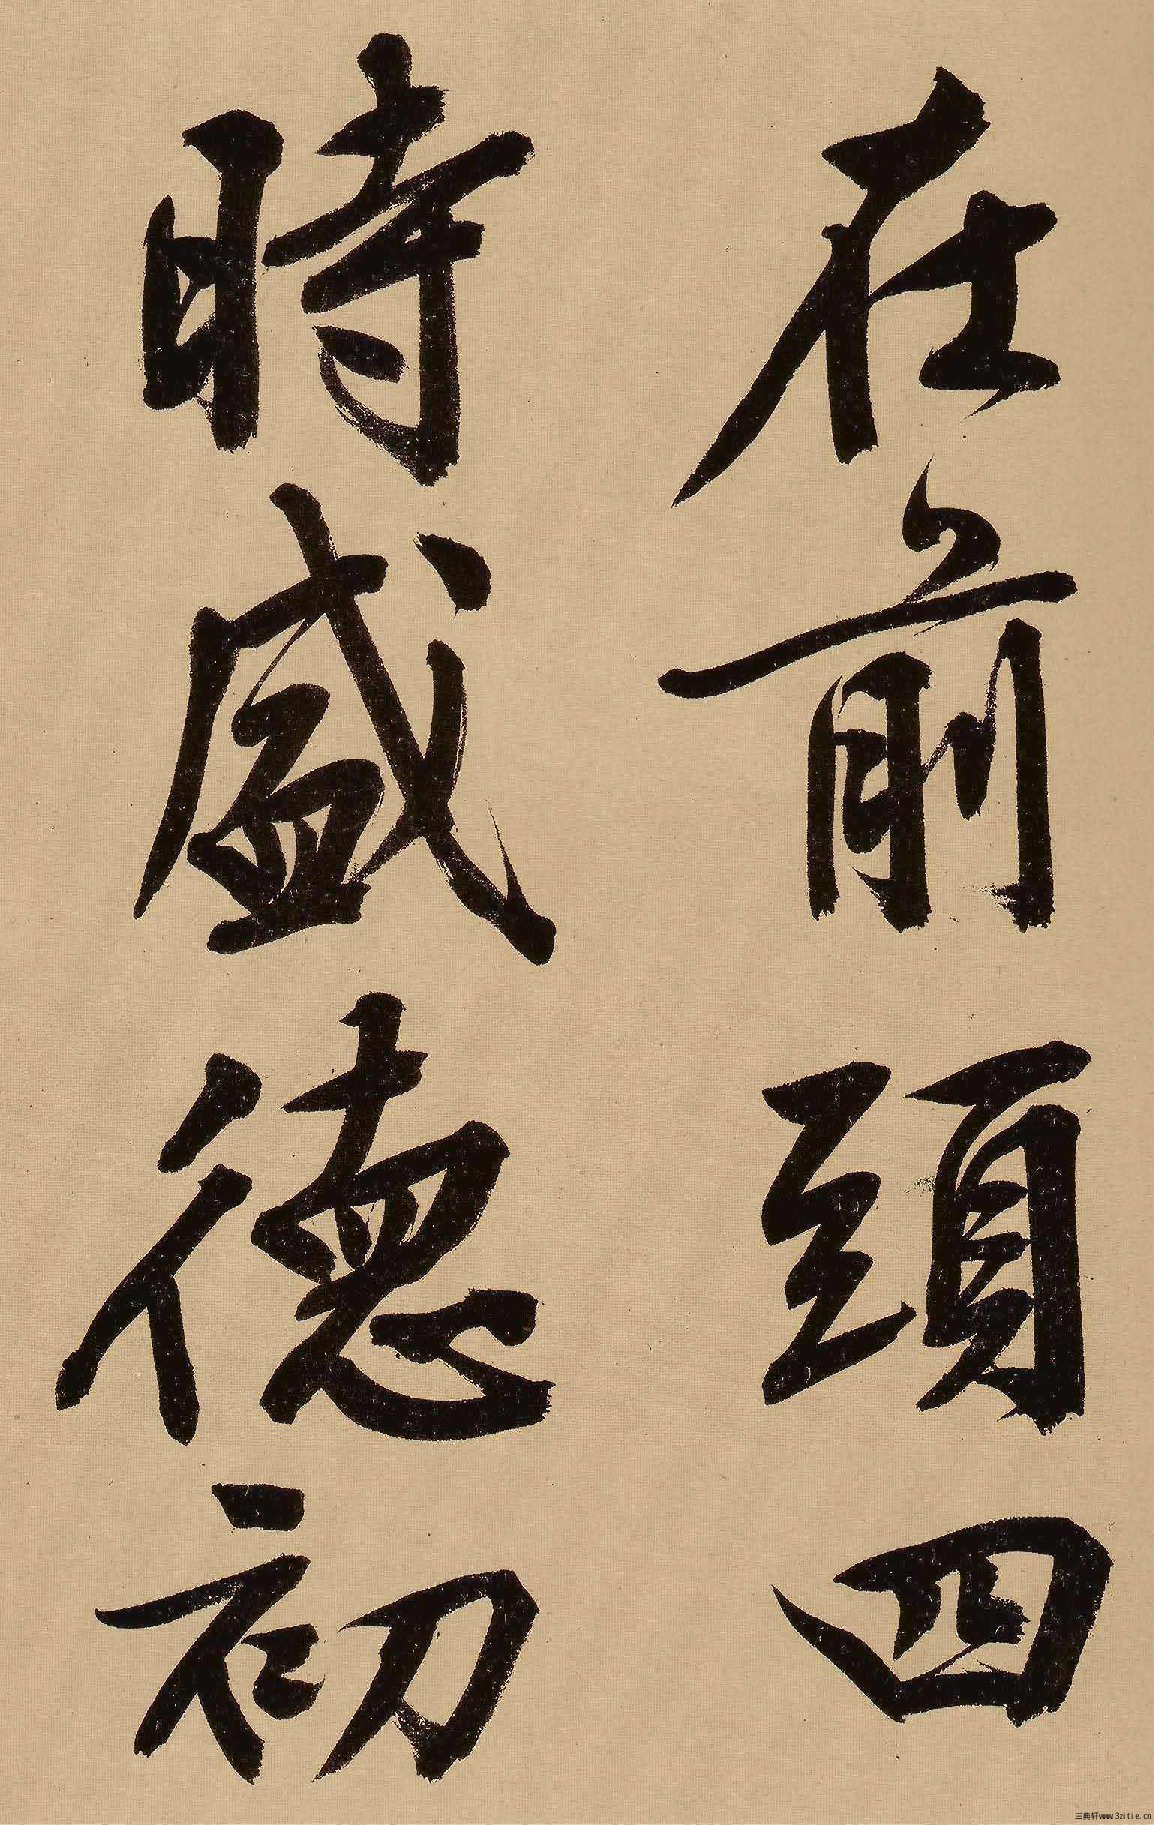 在前頭四
時盛德初
三典轩www.3zitie.cn